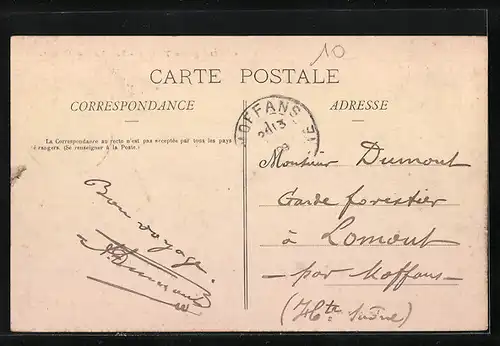 10
CARTE POSTALE
CORRESPONDANCE
ADRESSE
La Correspondance au recto n'est pas acceptée par tous les pays
étrangers. (Se renseigner à la Poste.)
MOFFANS
13
Bon voyage.
Monsieur Dumont
Garde forestier
à Lomont
- par Moffans -
(Hte Saône)